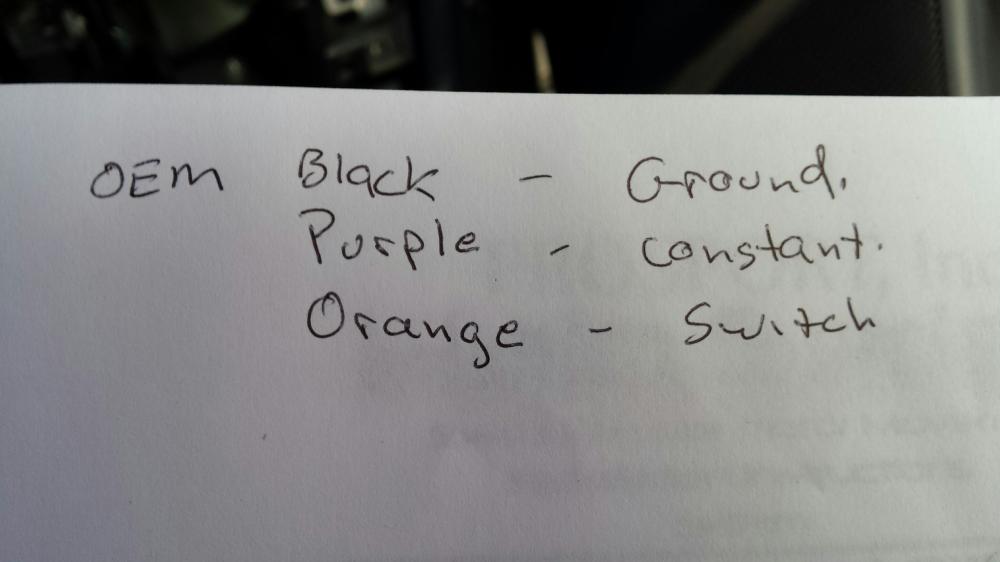 OEM Black - Ground.
Purple - constant.
Orange - Switch